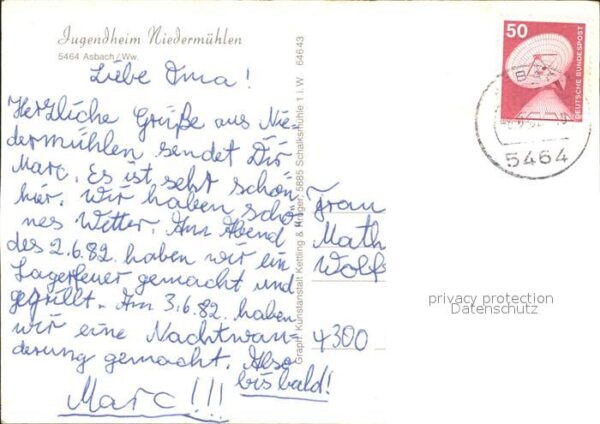 Jugendheim Niedermühlen
5464 Asbach/Ww.
Liebe Oma!
Herzliche Grüße aus Nie-
dermühlen, sendet Dir
Marc. Es ist sehr schön
hier. Wir haben schö-
nes Wetter. Am Abend
des 2.6.82 haben wir ein
Lagerfeuer gemacht und
gegrillt. Am 3.6.82 haben
wir eine Nachtwan-
derung gemacht. Also
bis bald!
Marc!!!
Graph. Kunstanstalt Kettling & Krüger, 5885 Schalksmühle 1 i. W 64643
50
DEUTSCHE BUNDESPOST
5464
Frau
Math
Wolfs
4300
privacy protection
Datenschutz